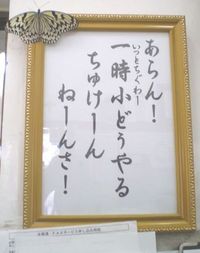 あらん!
一時小どうやる
いっとちぐゎー
ちゅけーん
ねーんさ!